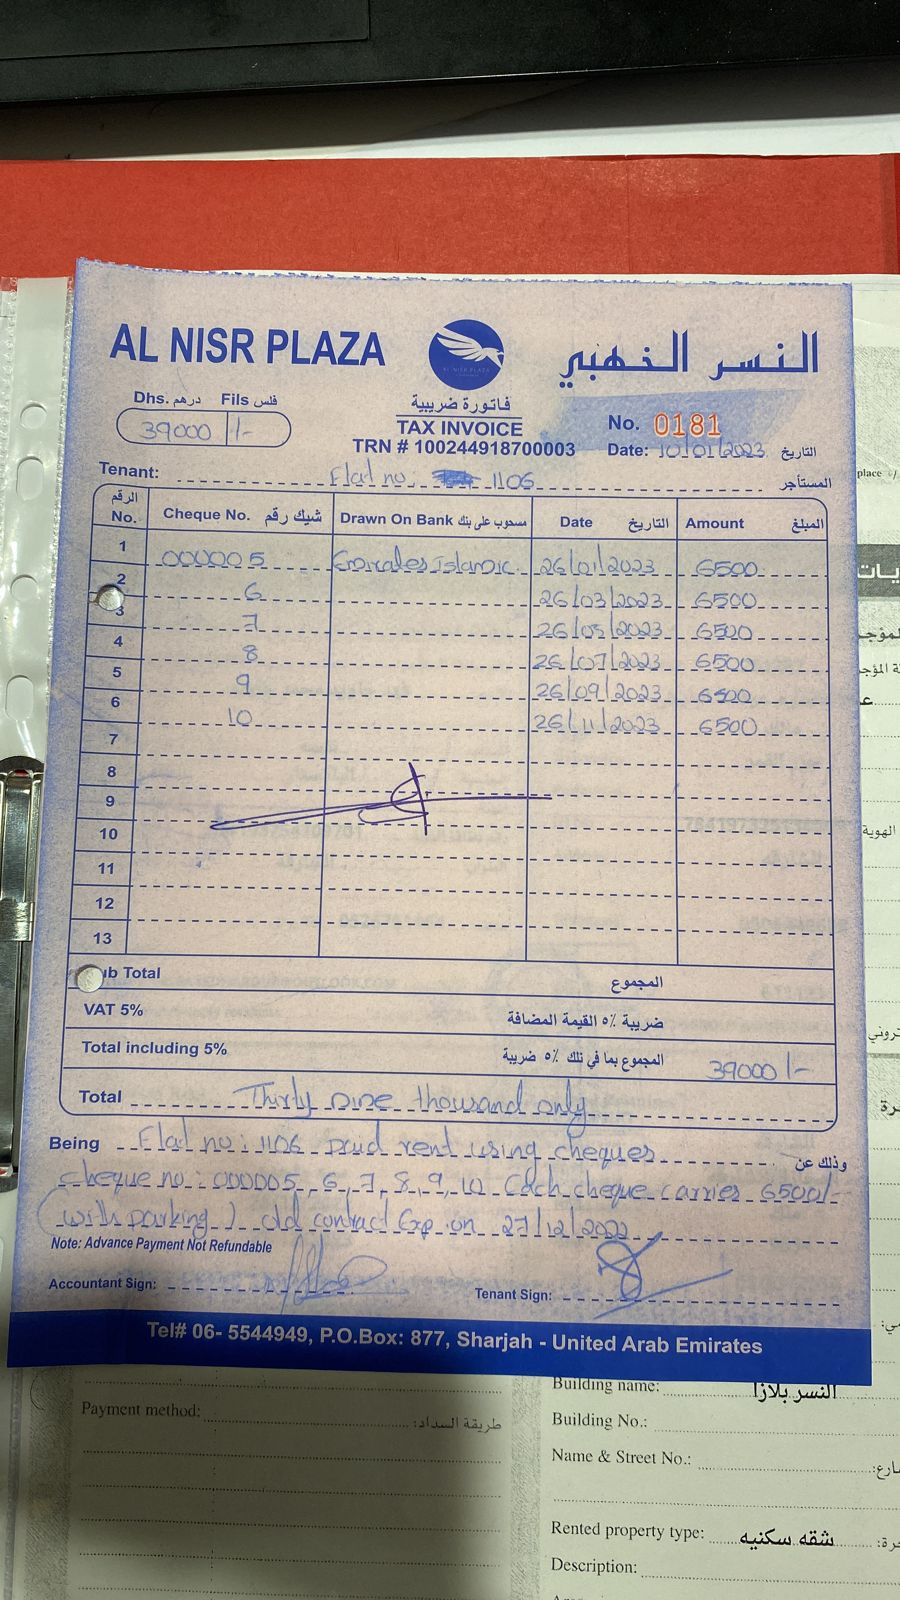 AL NISR PLAZA
النسر الذهبي
AL NISR PLAZA
Dhs. درهم Fils فلس
39000 /-
فاتورة ضريبية
TAX INVOICE
TRN # 100244918700003
No. 0181
Date: 10/01/2023 التاريخ
Tenant: Flat no 1106 المستأجر
الرقم No. Cheque No. شيك رقم Drawn On Bank مسحوب على بنك Date التاريخ Amount المبلغ
1 000005 Emirates islamic. 26/01/2023 6500
2 6 26/03/2023 6500
3 7 26/05/2023 6500
4 8 26/07/2023 6500
5 9 26/09/2023 6500
6 10 26/11/2023 6500
7
8
9
10
11
12
13
ub Total المجموع
VAT 5% ضريبة ٥٪ القيمة المضافة
Total including 5% المجموع بما في ذلك ٥٪ ضريبة 39000/-
Total Thirty nine thousand only
Being Flat no: 1106 paid rent using cheques وذلك عن
cheque no: 000005, 6, 7, 8, 9, 10 Each cheque carries 6500/-
(with parking) old contract Exp on 27/12/2022
Note: Advance Payment Not Refundable
Accountant Sign: Tenant Sign:
Tel# 06- 5544949, P.O.Box: 877, Sharjah - United Arab Emirates
place
الهوية
Payment method: طريقة السداد:
Building name: النسر بلازا
Building No.:
Name & Street No.:
Rented property type: شقه سكنيه
Description: